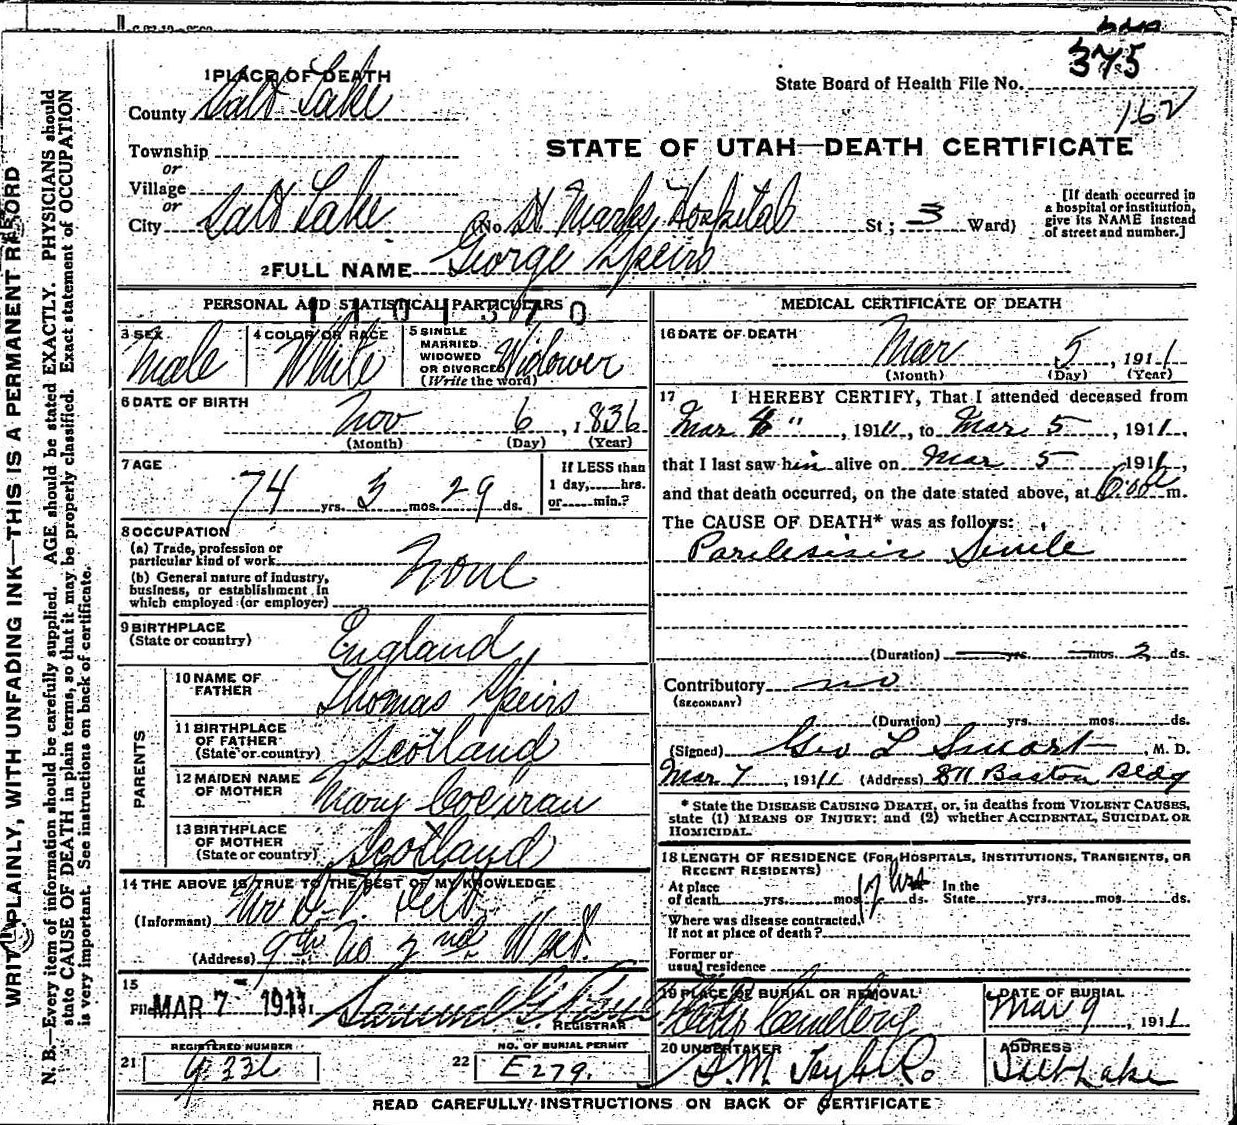 375
State Board of Health File No.
162
1 PLACE OF DEATH
County Salt Lake
STATE OF UTAH—DEATH CERTIFICATE
Township
or
Village
or
City Salt Lake (No St Marks Hospital St; 3 Ward)
[If death occurred in
a hospital or institution,
give its NAME instead
of street and number.]
2 FULL NAME George Speirs
PERSONAL AND STATISTICAL PARTICULARS
3 SEX Male
4 COLOR OR RACE White
5 SINGLE
MARRIED
WIDOWED
OR DIVORCED Widower
(Write the word)
6 DATE OF BIRTH
Nov 6, 1836
(Month) (Day) (Year)
7 AGE
74 yrs. 3 mos. 29 ds.
If LESS than
1 day,.....hrs.
or.....min.?
8 OCCUPATION
(a) Trade, profession or
particular kind of work None
(b) General nature of industry,
business, or establishment in
which employed (or employer)
9 BIRTHPLACE
(State or country) England
PARENTS
10 NAME OF
FATHER Thomas Speirs
11 BIRTHPLACE
OF FATHER
(State or country) Scotland
12 MAIDEN NAME
OF MOTHER Mary Cochran
13 BIRTHPLACE
OF MOTHER
(State or country) Scotland
14 THE ABOVE IS TRUE TO THE BEST OF MY KNOWLEDGE
(Informant)
(Address) 9th No 2nd West.
15
Filed MAR 7 - 1911 Samuel G.
REGISTRAR
REGISTERED NUMBER
21
NO. OF BURIAL PERMIT
22 E 279.
MEDICAL CERTIFICATE OF DEATH
16 DATE OF DEATH
Mar 5, 1911
(Month) (Day) (Year)
17 I HEREBY CERTIFY, That I attended deceased from
Mar 4", 1911, to Mar 5, 1911,
that I last saw him alive on Mar 5 1911,
and that death occurred, on the date stated above, at m.
The CAUSE OF DEATH* was as follows:
Paralesisis Senile
(Duration) yrs. mos. 2 ds.
Contributory no
(SECONDARY)
(Duration) yrs. mos. ds.
(Signed) Geo L Smart, M. D.
Mar 7, 1911 (Address) 811 Boston Bldg
* State the DISEASE CAUSING DEATH, or, in deaths from VIOLENT CAUSES,
state (1) MEANS OF INJURY; and (2) whether ACCIDENTAL, SUICIDAL OR
HOMICIDAL.
18 LENGTH OF RESIDENCE (FOR HOSPITALS, INSTITUTIONS, TRANSIENTS, OR
RECENT RESIDENTS)
At place
of death yrs. mos. 17 hrs ds. In the
State yrs. mos. ds.
Where was disease contracted,
If not at place of death?
Former or
usual residence
19 PLACE OF BURIAL OR REMOVAL
City Cemetery
DATE OF BURIAL
Mar 9, 1911
20 UNDERTAKER
ADDRESS
Salt Lake
READ CAREFULLY INSTRUCTIONS ON BACK OF CERTIFICATE
WRITE PLAINLY, WITH UNFADING INK—THIS IS A PERMANENT RECORD
N. B.—Every item of information should be carefully supplied. AGE should be stated EXACTLY. PHYSICIANS should
state CAUSE OF DEATH in plain terms, so that it may be properly classified. Exact statement of OCCUPATION
is very important. See instructions on back of certificate.